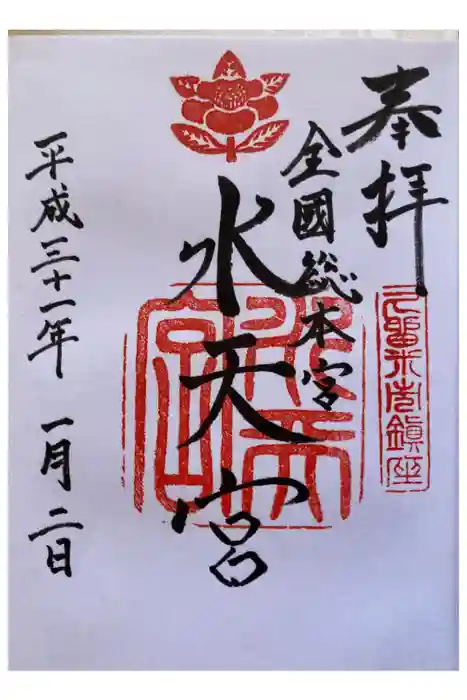 奉拝
久留米市鎮座
全國総本宮
水天宮
水天宮
平成三十一年 一月二日